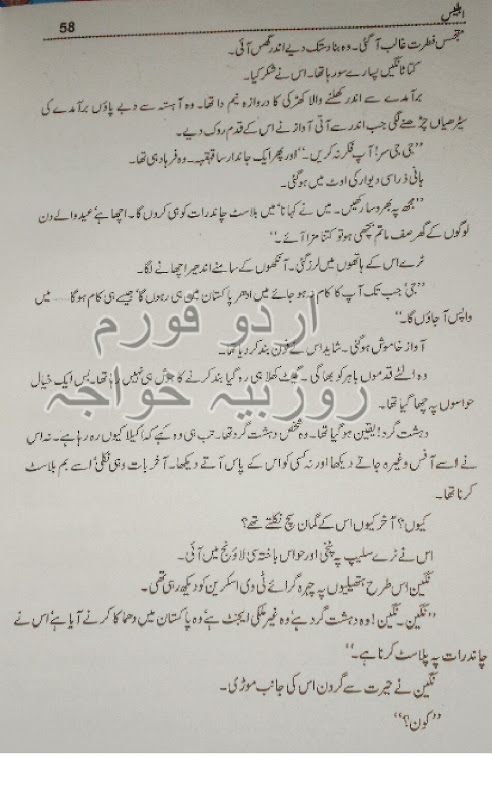 ابلیس
58
متجسس فطرت غالب آ گئی۔ وہ بنا دستک دیے اندر گھس آئی۔
کتا ٹانگیں پسارے سو رہا تھا۔ اس نے شکر کیا۔
برآمدے سے اندر کھلنے والا کھڑکی کا دروازہ نیم وا تھا۔ وہ آہستہ سے دبے پاؤں برآمدے کی
سیڑھیاں چڑھنے لگی جب اندر سے آتی آواز نے اس کے قدم روک دیے۔
”جی جی سر! آپ فکر نہ کریں۔“ اور پھر ایک جاندار سا قہقہہ۔ وہ فرہاد ہی تھا۔
ہانی ذرا سی دیوار کی اوٹ میں ہو گئی۔
”مجھ پہ بھروسا رکھیں۔ میں نے کہا نا‘ میں بلاسٹ چاند رات کو ہی کروں گا۔ اچھا ہے‘ عید والے دن
لوگوں کے گھر صف ماتم بچھی ہو تو کتنا مزا آئے۔“
ٹرے اس کے ہاتھوں میں لرز گئی۔ آنکھوں کے سامنے اندھیرا چھانے لگا۔
”جی‘ جب تک آپ کا کام نہ ہو جائے میں ادھر پاکستان میں ہی رہوں گا‘ جیسے ہی کام ہو گا ...... میں
واپس آ جاؤں گا۔“
آواز خاموش ہو گئی۔ شاید اس نے فون بند کر دیا تھا۔
وہ الٹے قدموں باہر کو بھاگی۔ گیٹ کھلا ہی رہ گیا بند کرنے کا ہوش ہی نہیں رہا تھا۔ بس ایک خیال
حواسوں پہ چھا گیا تھا۔
اردو فورم
روزبیہ خواجہ
دہشت گرد! یقین ہو گیا تھا۔ وہ شخص دہشت گرد تھا۔ تب ہی وہ کہے کہ اکیلا کیوں رہ رہا ہے۔ نہ اس
نے اسے آفس وغیرہ جاتے دیکھا اور نہ کسی کو اس کے پاس آتے دیکھا۔ آخر بات وہی نکلی‘ اسے بم بلاسٹ
کرنا تھا۔
کیوں؟ آخر کیوں اس کے گمان سچ نکلتے تھے؟
اس نے ٹرے سلیپ پہ پٹخی اور حواس باختہ سی لاؤنج میں آئی۔
نگین اس طرح ہتھیلیوں پہ چہرہ گرائے ٹی وی اسکرین کو دیکھ رہی تھی۔
”نگین۔ نگین! وہ دہشت گرد ہے‘ وہ غیر ملکی ایجنٹ ہے‘ وہ پاکستان میں دھماکا کرنے آیا ہے‘ اس نے
چاند رات پہ بلاسٹ کرنا ہے۔“
نگین نے حیرت سے گردن اس کی جانب موڑی۔
”کون؟“